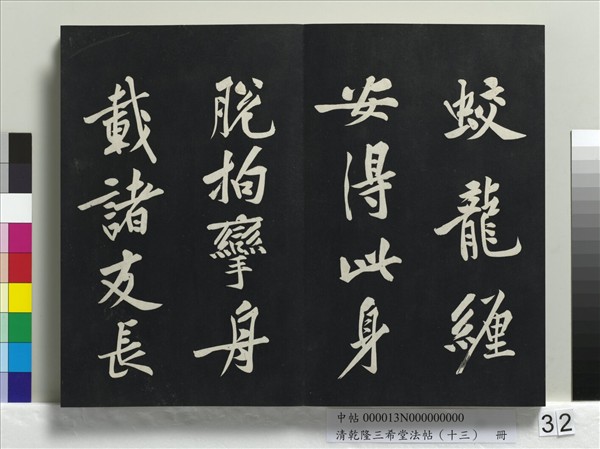 蛟龍纏
安得此身
脫拘攣舟
載諸友長
中帖 000013N000000000
清乾隆三希堂法帖（十三） 冊
32